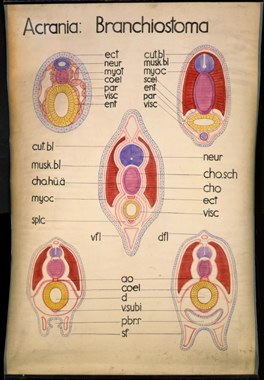 Acrania: Branchiostoma
ect
neur
myot
coel
par
visc
ent
cut.bl
musk.bl
myoc
scel
ent
par
visc
cut.bl
musk.bl
cho.hü.ä
myoc
splc
neur
cho.sch
cho
ect
visc
vfl
dfl
ao
coel
d
v.subi
pbrr
sf